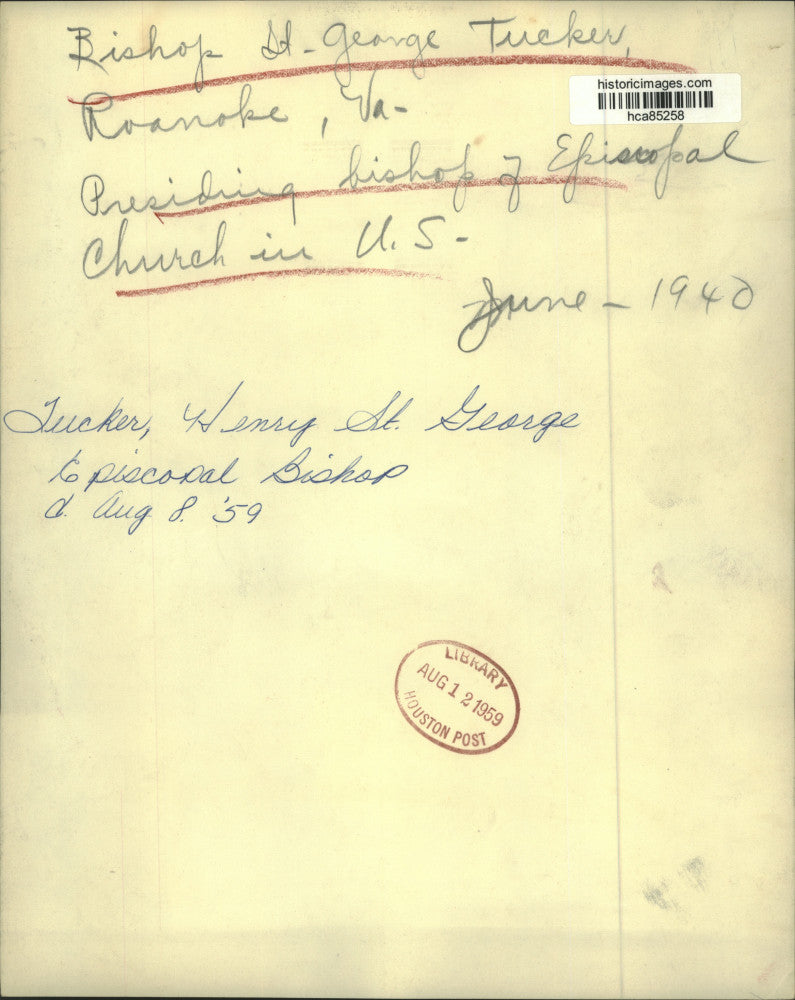 Bishop St. George Tucker,
historicimages.com
hca85258
Roanoke, Va-
Presiding bishop of Episcopal
Church in U.S-
June - 1940
Tucker, Henry St. George
Episcopal Bishop
d. Aug 8. '59
LIBRARY
AUG 12 1959
HOUSTON POST